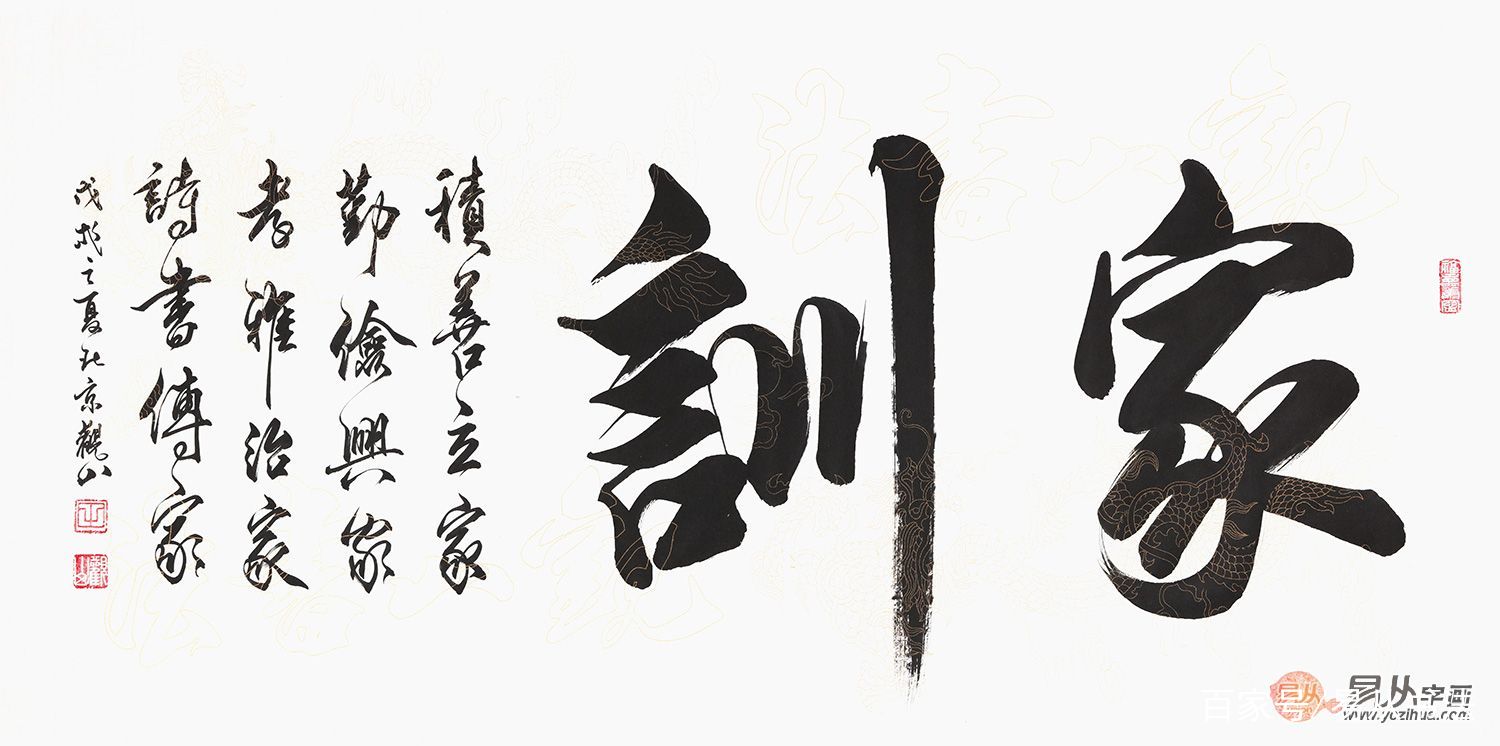 家訓
積善立家
勤儉興家
孝雅治家
詩書傳家
戊戌之夏北京觀山
易从字画
www.yozihua.com
百家号